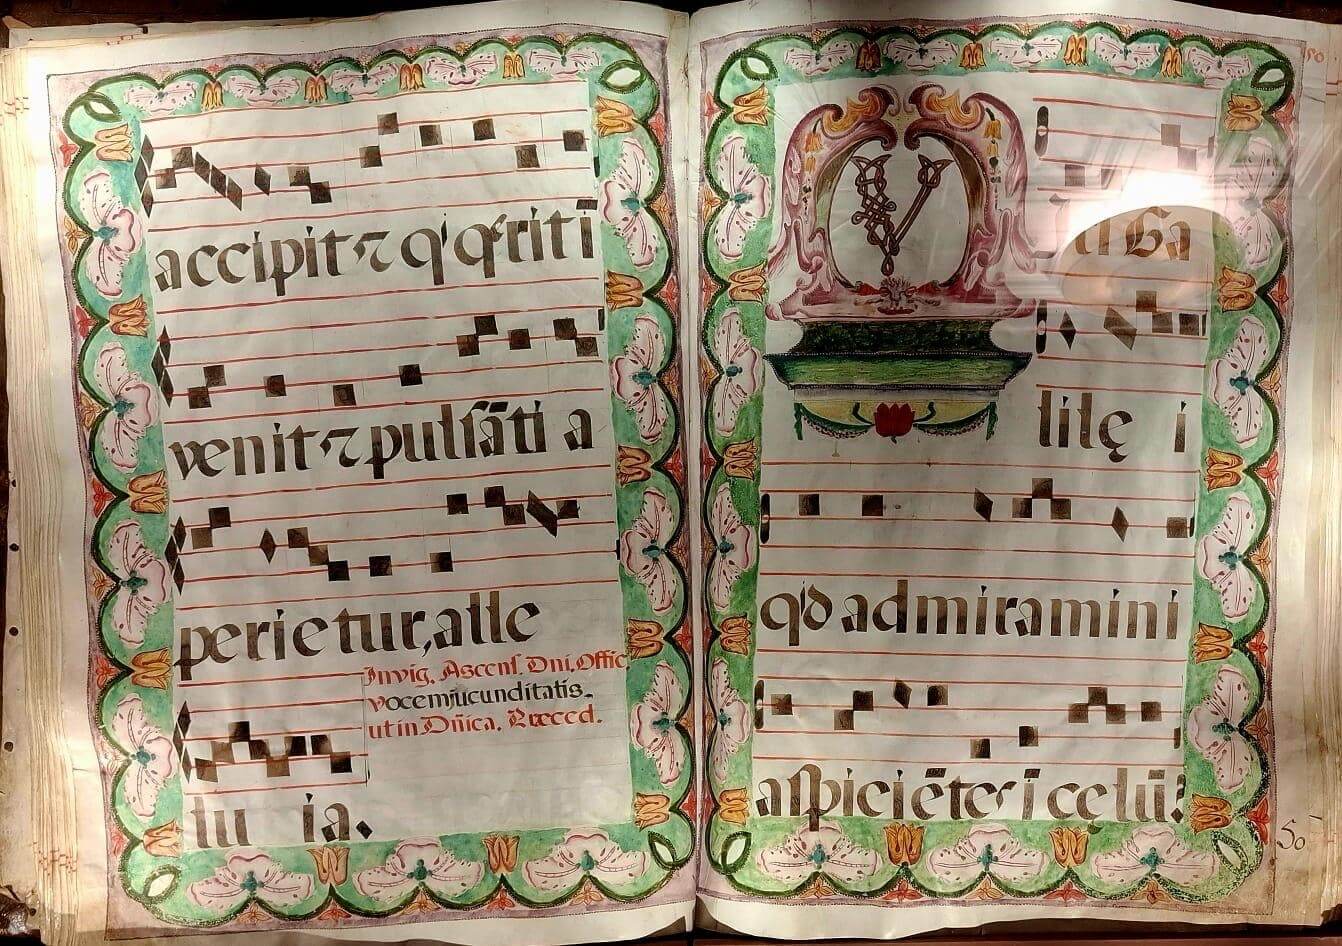 accipit, ⁊ q̇ q̄rit ī
venit, ⁊ pulsāti a
perietur, alle
In vig. Ascens. Dni. Offic.
vocem jucunditatis.
ut in Dñica. Præced.
lu ia.
50
V iri Ga
lilę i
qd admiramini
aspiciētes ī cęlū?
50